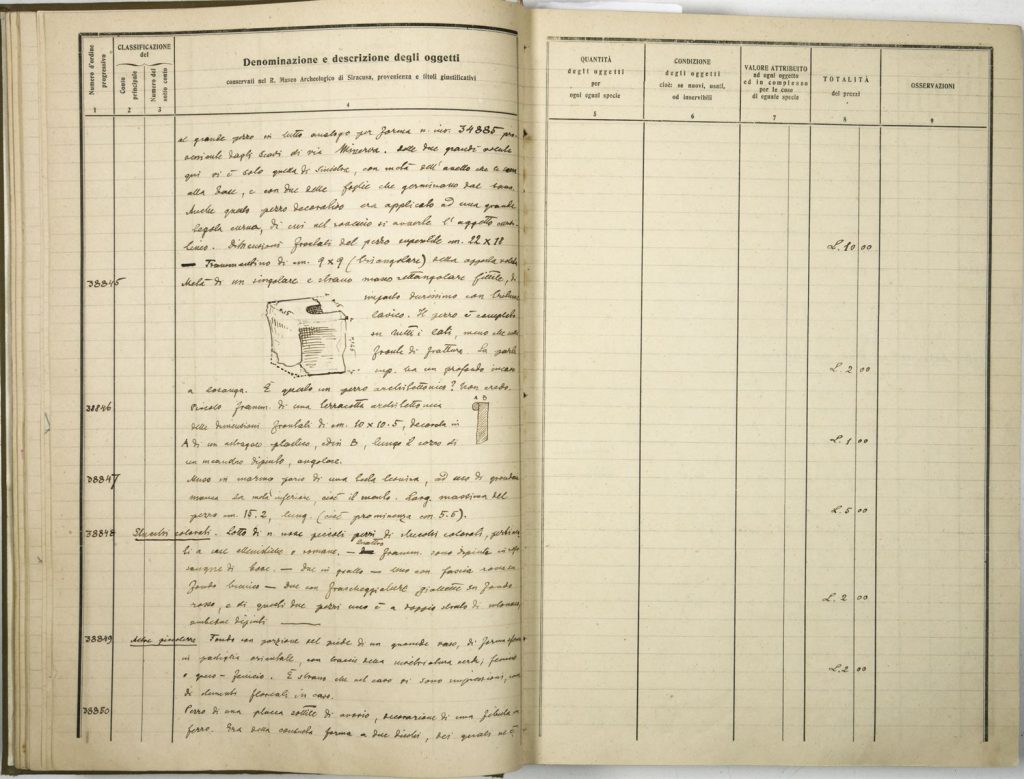 Numero d'ordine progressivo
CLASSIFICAZIONE del
Conto principale
Numero del sotto conto
Denominazione e descrizione degli oggetti
conservati nel R. Museo Archeologico di Siracusa, provenienza e titoli giustificativi
1 2 3 4
al grande pezzo in tutto analogo per forma n. inv. 34885 pro
veniente dagli scavi di via Minerva. Delle due grandi volute
qui vi è solo quella di sinistra, con metà dell'anello che le
alla base, e con due delle foglie che germinano dal
Anche questo pezzo decorativo era applicato ad una grande
tegola curva, di cui nel rovescio si avverte l'oggetto
lineo. Dimensioni frontali del pezzo superstite cm. 22 x 18
— Frammentino di cm. 9 x 9 (triangolare) della opposta voluta
38845 Metà di un singolare e strano masso rettangolare fittile, di
impasto durissimo con
lavico. Il pezzo è completo
su tutti i lati, meno che
fronte di frattura. La parte
sup. ha un profondo incavo
a losanga. È questo un pezzo architettonico? Non credo.
38846 Piccolo framm. di una terracotta architettonica
delle dimensioni frontali di cm. 10 x 10.5, decorata in
A di un astragalo plastico, ed in B, lungo il
un meandro dipinto, angolare.
A B
38847 Muso in marmo pario di una testa leonina, ad uso di grondaia
manca la metà inferiore, cioè il mento. Larg. massima del
pezzo cm. 15.2, lung. (cioè prominenza cm. 5.5).
38848 Stucchi colorati. Lotto di n. nove piccoli pezzi di stucchi colorati,
li a case ellenistiche o romane. — quattro framm. sono dipinti in
sangue di bove. — due in giallo — uno con fascia rossa su
fondo bianco — due con frascheggiature giallette su fondo
rosso, e di questi due pezzi uno è a doppio strato di
ambedue dipinti
38849 Fondo con porzione del piede di un grande vaso, di forma
in pastiglia orientale, con tracce della invetriatura verde,
o greco-fenicio. È strano che nel cavo vi sono impressioni,
di elementi floreali in cavo.
38850 Pezzo di una placca sottile di avorio, decorazione di una fibula in
ferro. Era della consueta forma a due dischi, dei quali ne è
QUANTITÀ
degli oggetti
per
ogni egual specie
5
CONDIZIONE
degli oggetti
cioè: se nuovi, usati,
od inservibili
6
VALORE ATTRIBUITO
ad ogni oggetto
ed in complesso
per le cose
di eguale specie
7
TOTALITÀ
dei prezzi
8
OSSERVAZIONI
9
L. 10 00
L. 2 00
L. 1 00
L. 5 00
L. 2 00
L. 2 00